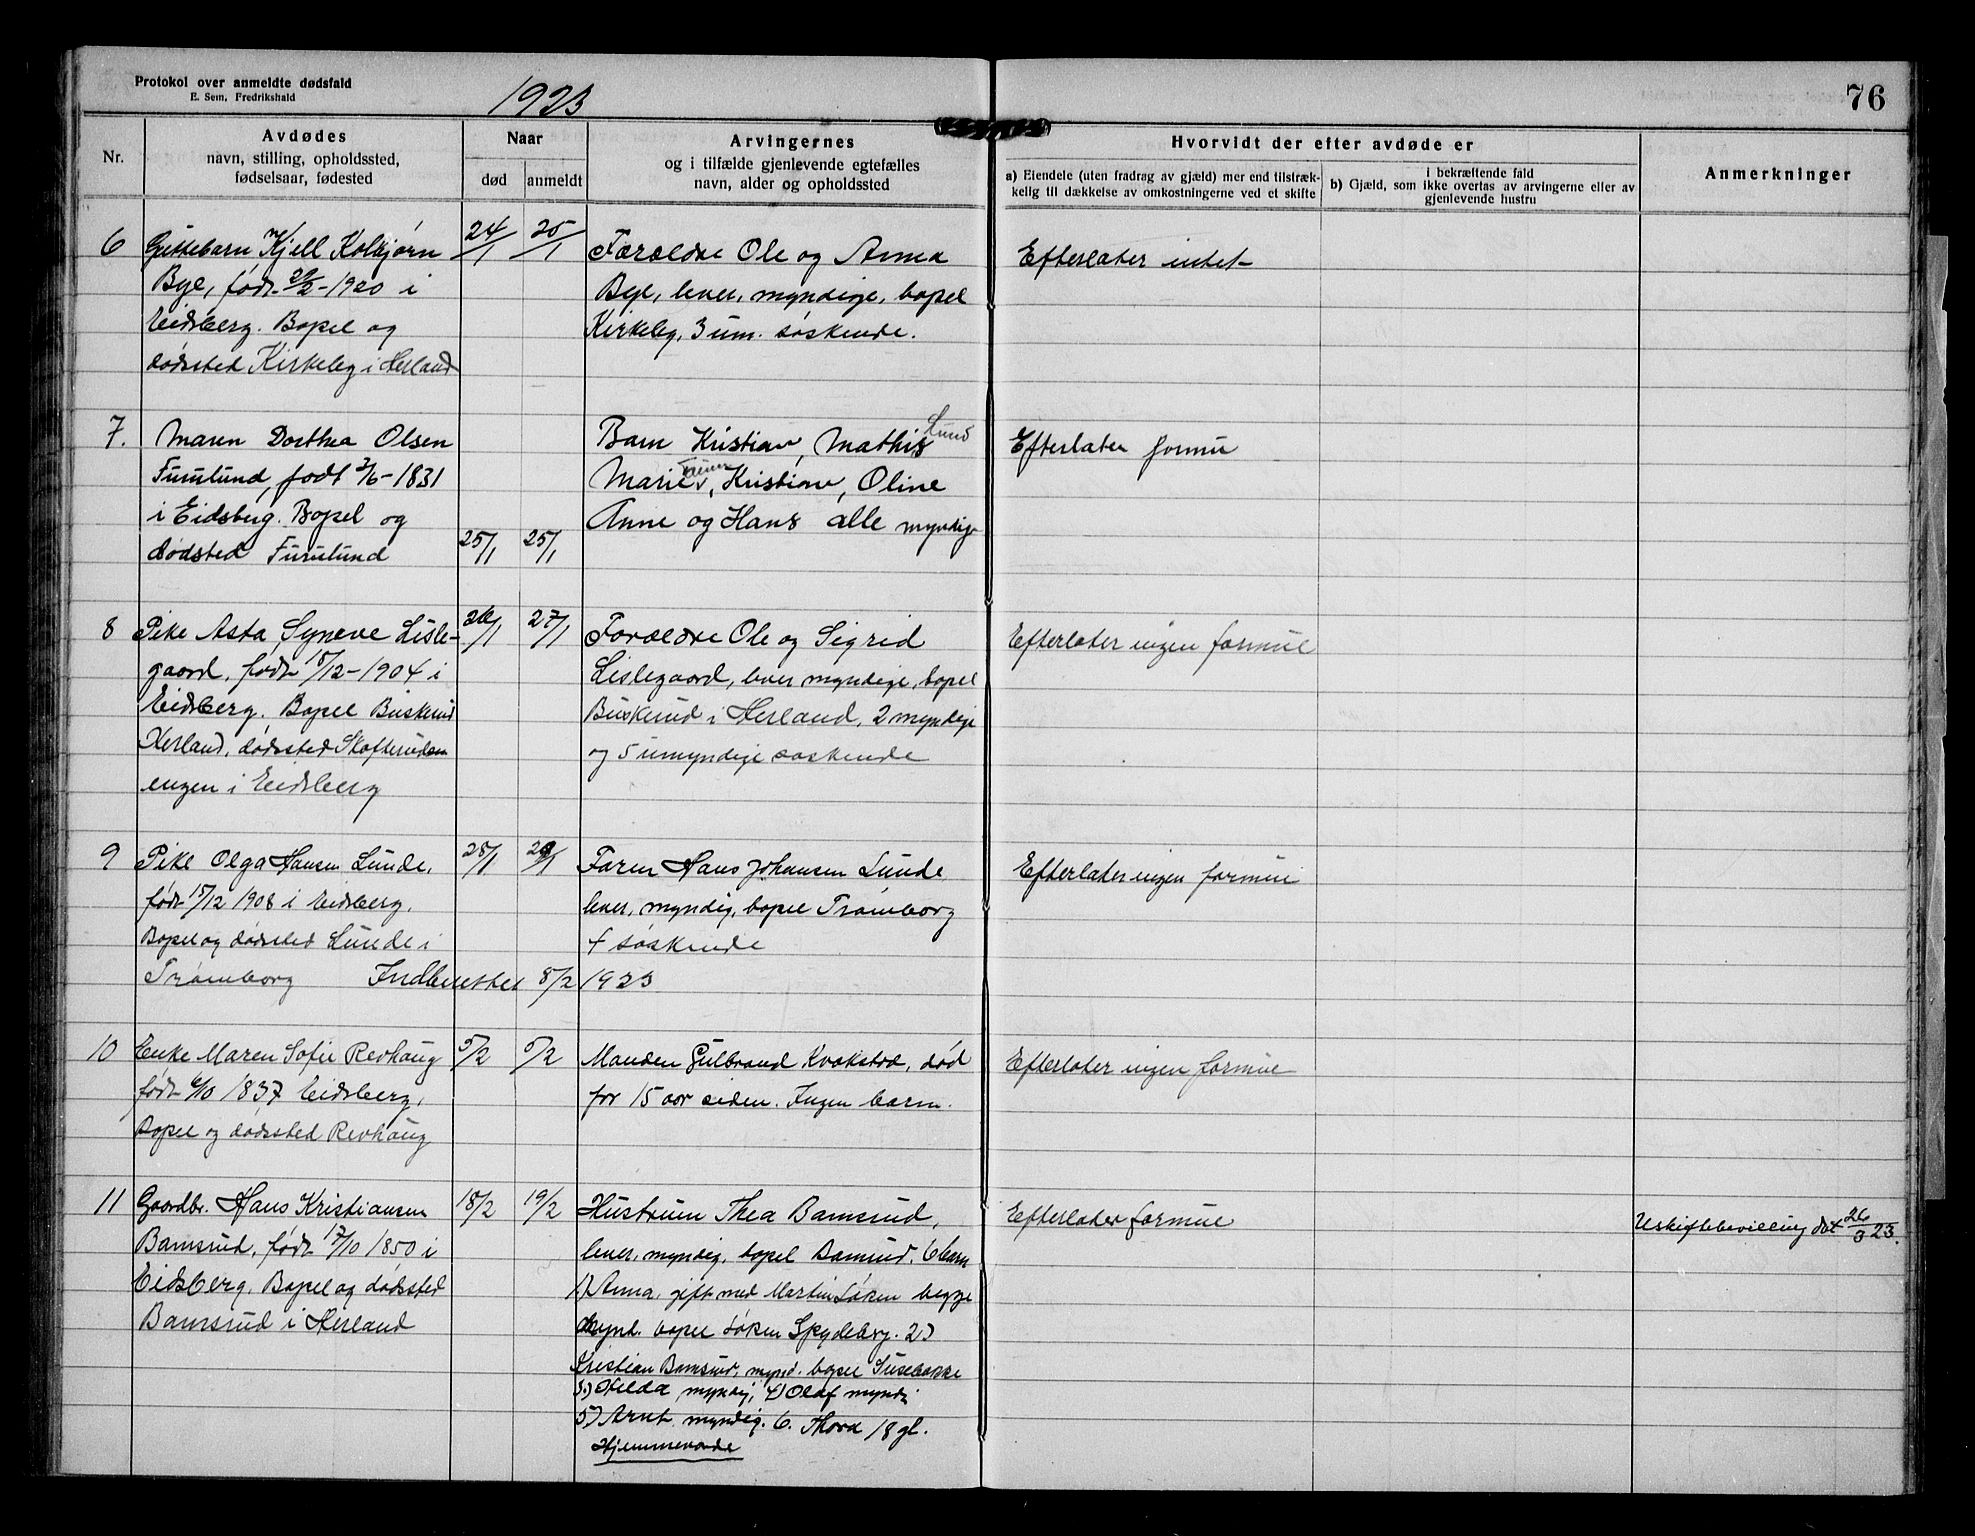 Protokol over anmeldte dødsfald
E. Sem, Fredrikshald
1923
76
Nr.
Avdødes
navn, stilling, opholdssted,
fødselsaar, fødested
Naar
død
anmeldt
Arvingernes
og i tilfælde gjenlevende egtefælles
navn, alder og opholdssted
Hvorvidt der efter avdøde er
a) Eiendele (uten fradrag av gjæld) mer end tilstræk-
kelig til dækkelse av omkostningerne ved et skifte
i bekræftende fald
b) Gjæld, som ikke overtas av arvingerne eller av
gjenlevende hustru
Anmerkninger
6
Guttebarn Kjell Kolbjørn
Bye, født 2/2-1920 i
Eidsberg. Bopel og
dødssted Kirkeby i Herland
24/1
25/1
Forældre Ole og Anna
Bye, lever, myndige, bopel
Kirkeby, 3 um. søskende.
Efterlater intet
7.
Maren Dorthea Olsen
Furulund, født 3/6-1831
i Eidsberg. Bopel og
dødsted Furulund
25/1
25/1
Lund
Barn Kristian, Mathis
Marie, Kristian, Oline
Anne og Hans alle myndige
Efterlater formue
8
Pike Asta Synøve Lisle-
gaard, født 15/12-1904 i
Eidsberg. Bopel Buskerud
Herland, dødssted Skofterud
engen i Eidsberg
26/1
27/1
Forældre Ole og Sigrid
Lislegaard, lever myndige, bopel
Buskerud i Herland, 2 myndige
og 5 umyndige søskende
Efterlater ingen formue
9
Pike Olga Hansen Lunde,
født 15/12 1908 i Eidsberg.
Bopel og dødssted Lunde i
Trømborg
28/1
29/1
Faren Hans Johansen Lunde
lever, myndig, bopel Trømborg
4 søskende
Efterlater ingen formue
Indberettet 8/2 1923
10
Enke Maren Sofie Revhaug
født 6/10 1837 Eidsberg,
Bopel og dødssted Revhaug
5/2
5/2
Manden Gulbrand Kvakstad, død
for 15 aar siden. Ingen barn.
Efterlater ingen formue
11
Gaardbr. Hans Kristiansen
Bamsrud, født 17/10 1850 i
Eidsberg, Bopel og dødssted
Bamsrud i Herland
18/2
19/2
Hustruen Thea Bamsrud,
lever, myndig, bopel Bamsrud. 6 barn
1) Anna, gift med Martin Løken begge
mynd. bopel Løken Spydeberg. 2)
Kristian Bamsrud, mynd. bopel Susebakke
3.) Hilda myndig, 4) Olaf myndig
5) Arnt myndig. 6. Thora 18 gl.
Hjemmeværende
Efterlater formue
Uskiftebevilling dat 26/3 23.